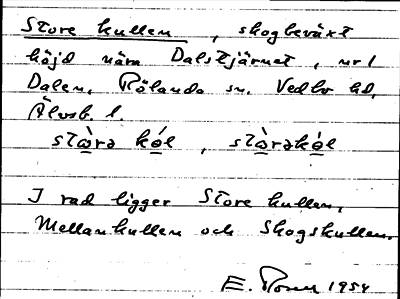 Store kullen, skogbeväxt
höjd nära Dalstjärnet, nr 1
Dalen, Rölanda sn. Vedbo hd,
Älvsb. l.
stὰ̲rə kὁ̲l, stὰ̲rəkὁ̲l
I rad ligger Store kullen,
Mellankullen och Skogskullen.
E. 1954